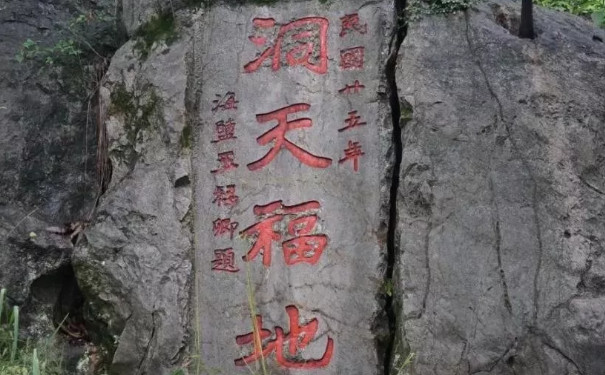 民國廿五年
洞天福地
海鹽卿題